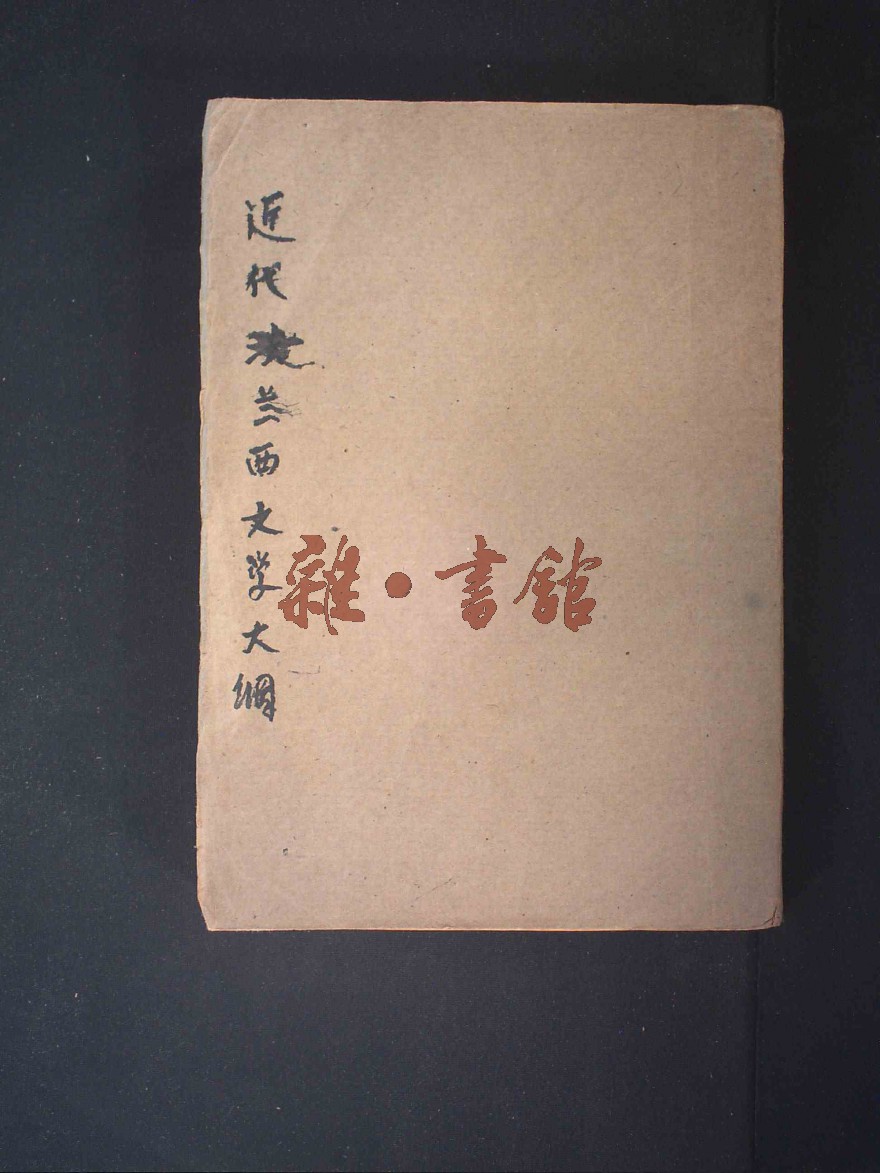 近代法兰西文学大綱
雜·書館